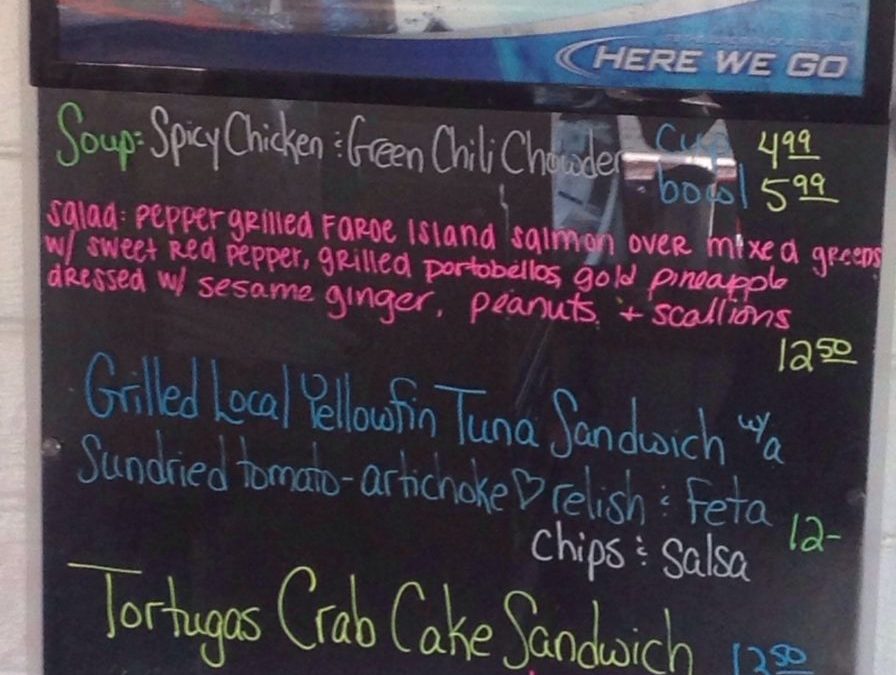 HERE WE GO
Soup: Spicy Chicken & Green Chili Chowder cup 4.99
bowl 5.99
salad: pepper grilled Faroe Island salmon over mixed greens
w/ sweet red pepper, grilled portobellos, gold pineapple
dressed w/ sesame ginger, peanuts, + scallions
12.50
Grilled Local Yellowfin Tuna Sandwich w/a
Sundried tomato-artichoke♡relish & Feta
12-
chips & salsa
Tortugas Crab Cake Sandwich